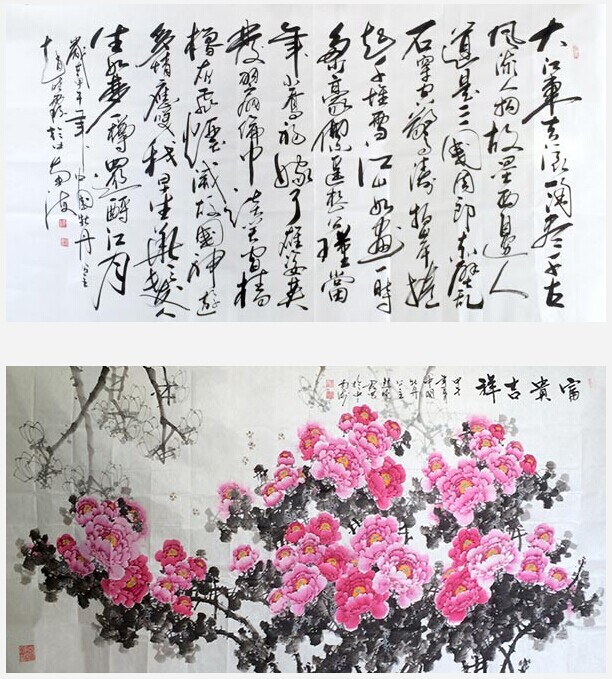 大江東去浪淘盡千古
風流人物故壘西邊人
道是三國周郎赤壁亂
石穿空驚濤拍岸捲
起千堆雪江山如畫一時
多少豪傑遙想公瑾當
年小喬初嫁了雄姿英
發羽扇綸巾談笑間檣
櫓灰飛煙滅故國神遊
多情應笑我早生華髮人
生如夢一樽還酹江月
歲甲午年中國牡丹公主
於中南海
富貴吉祥
甲午
年
中國
牡丹
公主
於中
南海